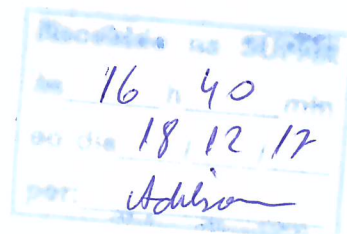 Recebido na SUPRAM
às 16 h 40 min
ao dia 18, 12, 17
por: Adilson